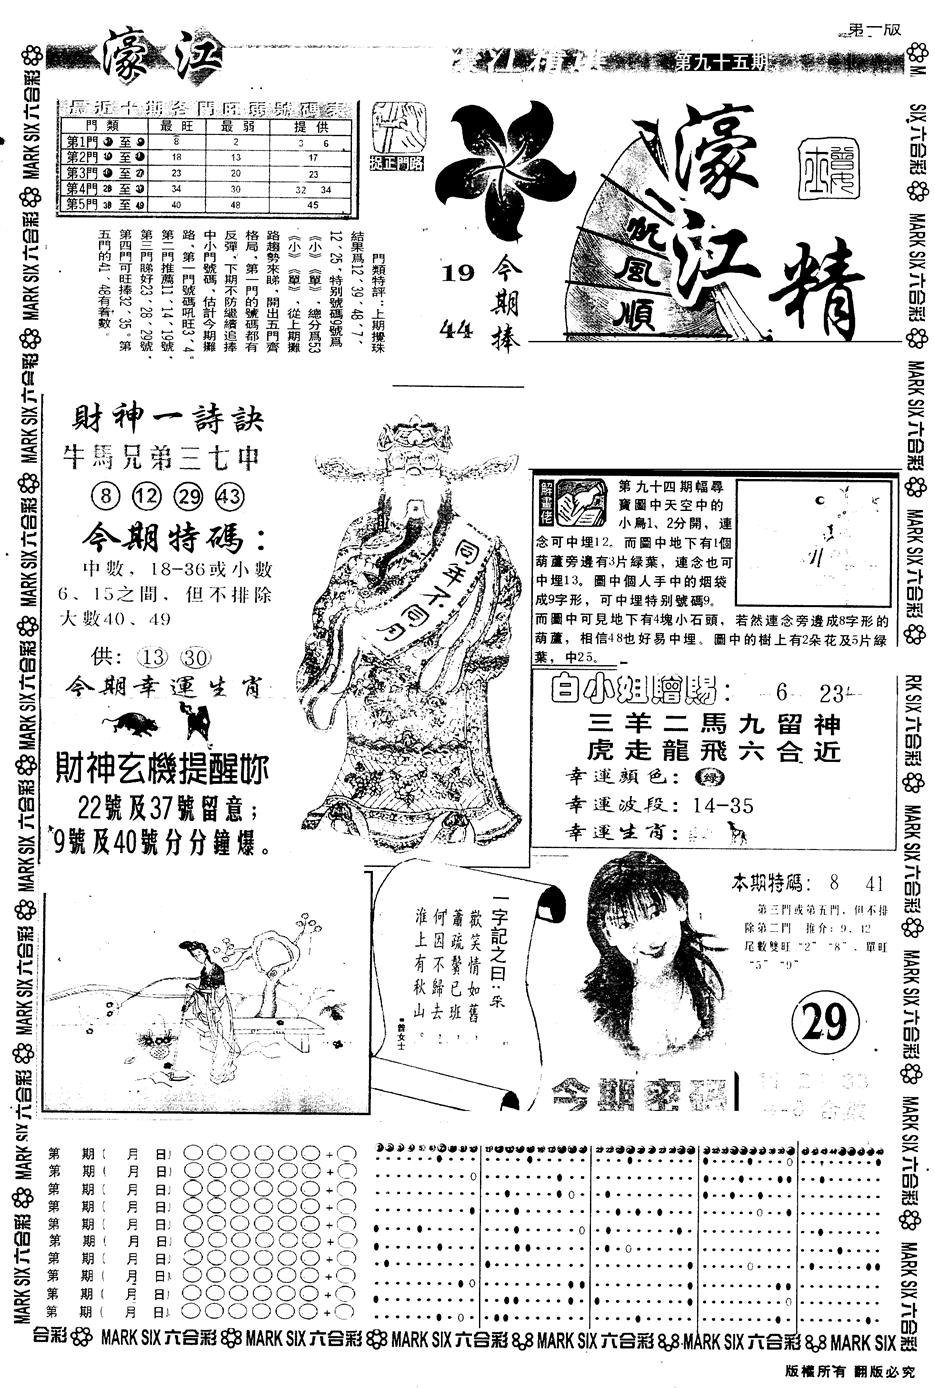 第一版
濠江
濠江精選
第九十五期
最近十期各門旺弱號碼表
門類 最旺 最弱 提供
第1門 至 8 2 3 6
第2門 至 18 13 17
第3門 至 23 20 23
第4門 28 至 34 30 32 34
第5門 38 至 49 40 48 45
捉正門路
門類特評：上期攪珠
結果爲12、39、48、7、
12、25，特別號碼9號爲
《小》《單》，總分爲53
《小》《單》，從上期攤
路趨勢來睇，開出五門齊
格局，第一門的號碼都有
反彈，下期不防繼續追捧
中小門號碼，估計今期攤
路，第一門號碼吼旺3、4。
第二門推薦11、14、19號，
第三門睇好23、28、29號，
第四門可旺捧32、35。第
五門的41、46有着數。
今期捧
19
44
帆風順
濠江精
財神一詩訣
牛馬兄弟三七中
8 12 29 43
今期特碼：
中數，18-36或小數
6、15之間，但不排除
大數40、49
供：13 30
今期幸運生肖
財神玄機提醒妳
22號及37號留意；
9號及40號分分鐘爆。
同年不同月
解畫佬
第九十四期幅尋
寶圖中天空中的
小鳥1、2分開，連
念可中埋12。而圖中地下有1個
葫蘆旁邊有3片綠葉，連念也可
中埋13。圖中個人手中的烟袋
成9字形，可中埋特别號碼9。
而圖中可見地下有4塊小石頭，若然連念旁邊成8字形的
葫蘆，相信48也好易中埋。圖中的樹上有2朵花及5片綠
葉，中25。
白小姐贈賜：6 23
三羊二馬九留神
虎走龍飛六合近
幸運顏色：綠
幸運波段：14-35
幸運生肖：
一字記之曰：采
歡笑情如舊，
蕭疏鬢已班，
何因不歸去，
淮上有秋山。
曾女士
本期特碼：8 41
第三門或第五門，但不排
除第二門 推介：9、12
尾數雙旺“2”“8”，單旺
“5”“9”
29
今期密碼
第 期( 月 日)
第 期( 月 日)
第 期( 月 日)
第 期( 月 日)
第 期( 月 日)
第 期( 月 日)
第 期( 月 日)
第 期( 月 日)
第 期( 月 日)
第 期( 月 日)
MARK SIX 六合彩 MARK SIX 六合彩 MARK SIX 六合彩 MARK SIX 六合彩 MARK SIX 六合彩 MARK SIX
版權所有 翻版必究